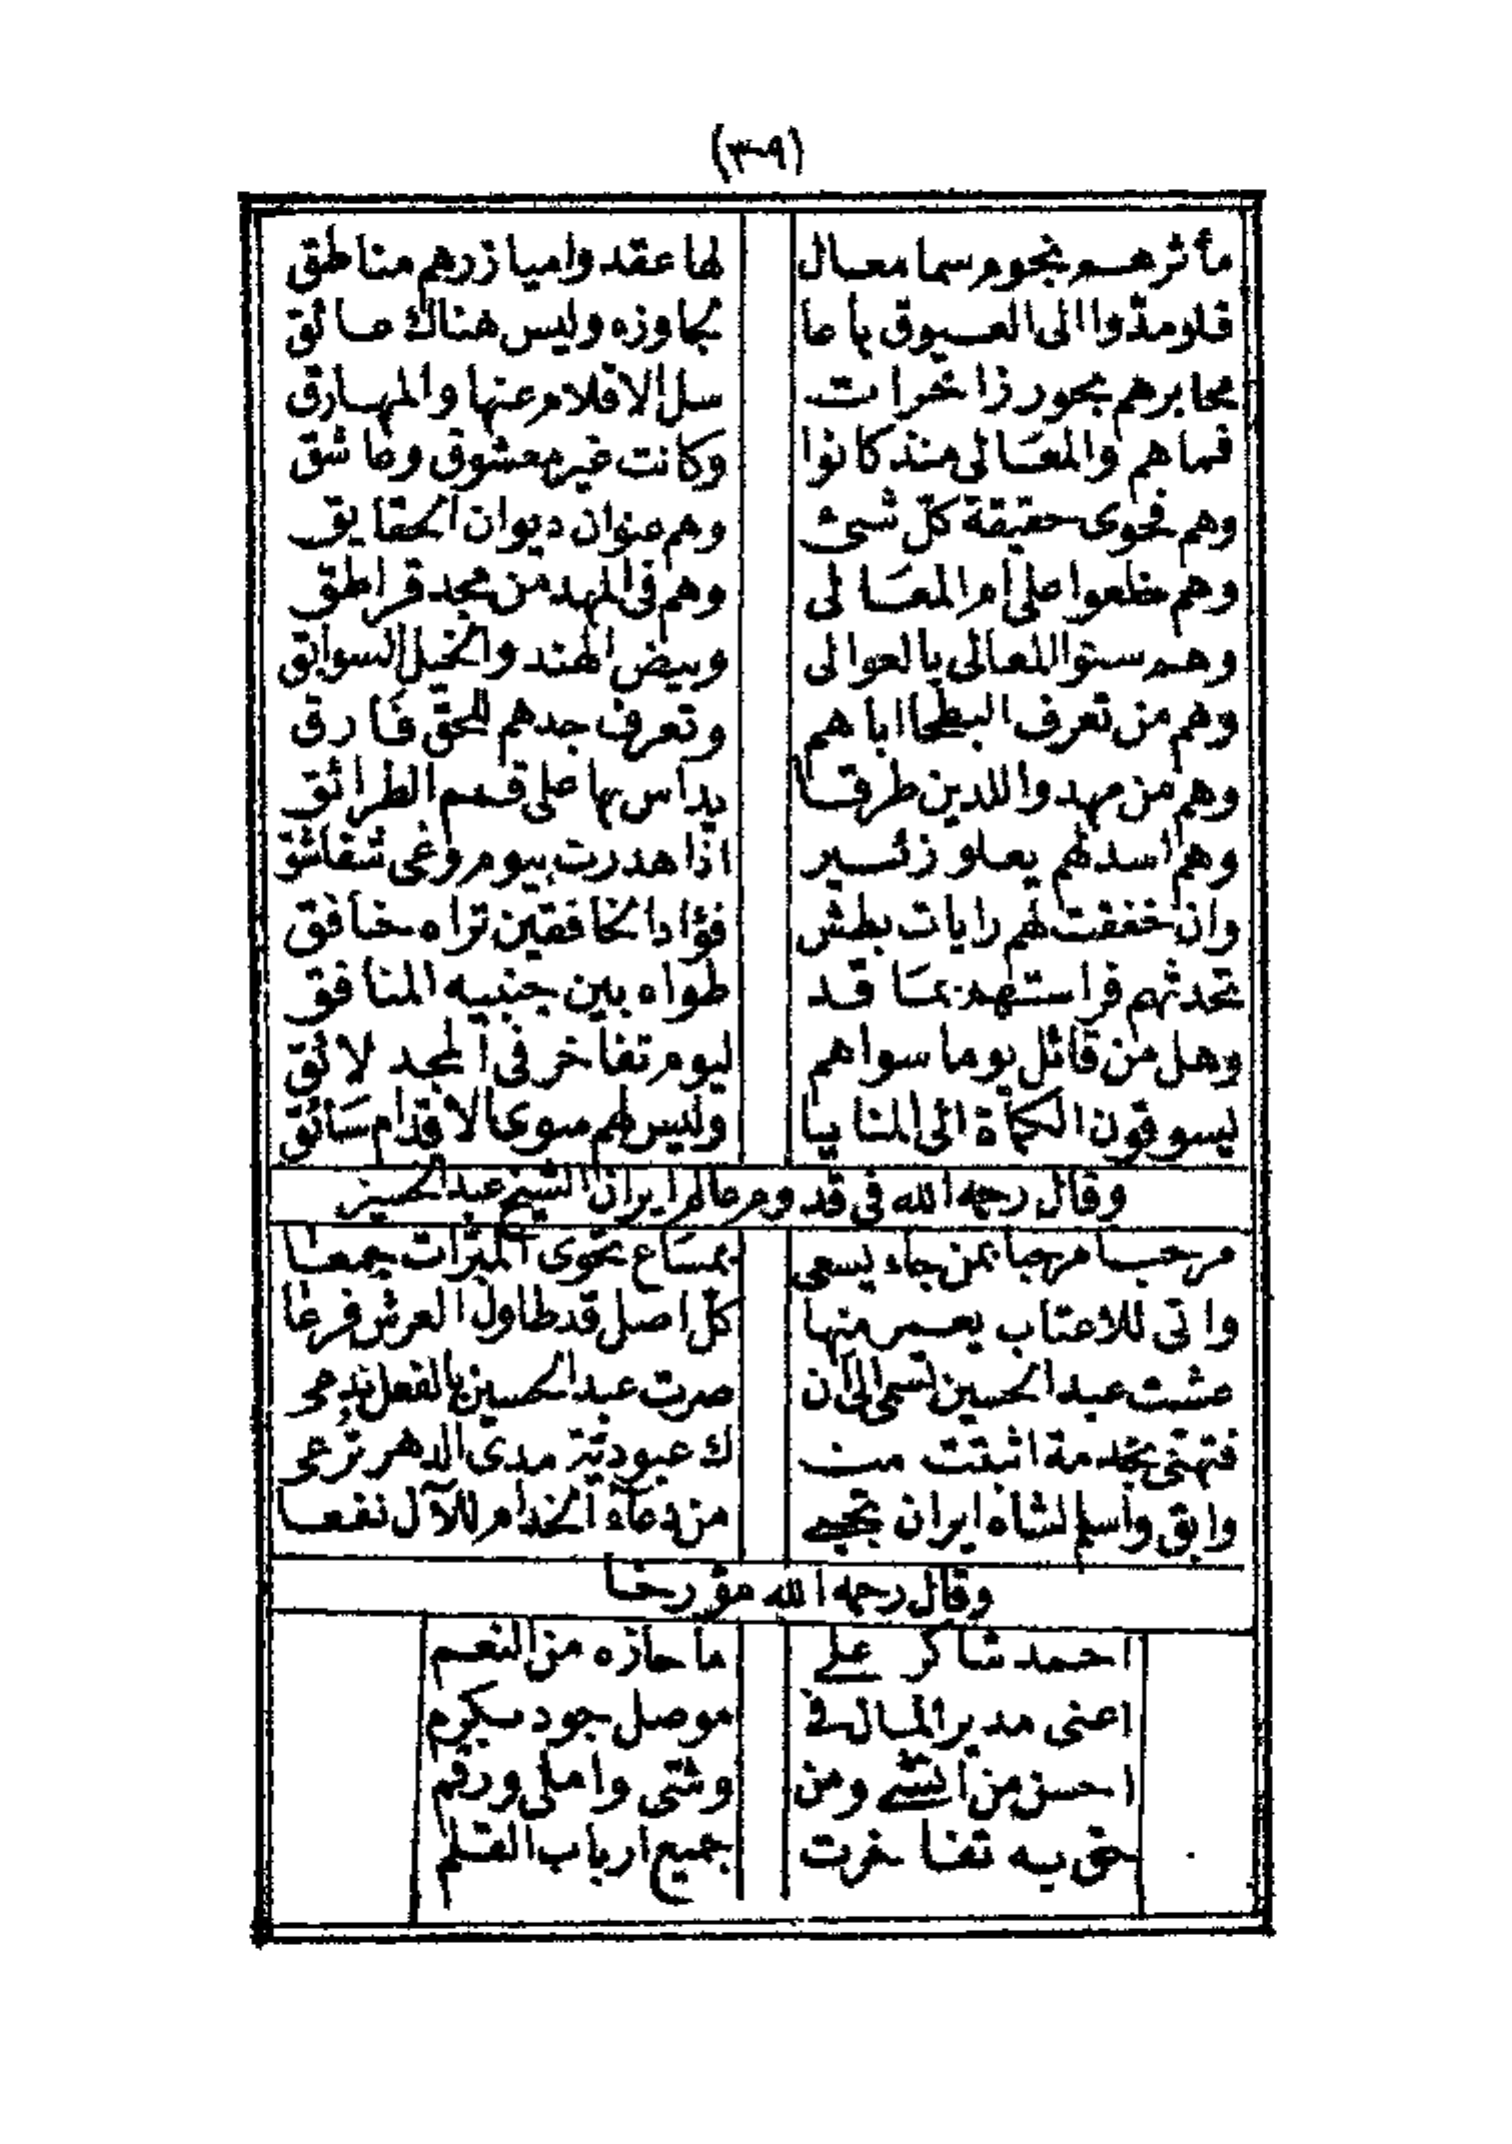 (٣٠٩)
مأثرهم نجوم سما معال لها عقدوا ميازرهم مناطق
فلو مدّوا الى العيوق باعا تجاوزه وليس هناك عائق
محابرهم بحور زاخرات سل الاقلام عنها والمهارق
فماهم والمعالى منذ كانوا وكانت غير معشوق وعاشق
وهم فحوى حقيقة كلّ شىء وهم عنوان ديوان الحقايق
وهم خلعوا على أم المعالى وهم فى المهد من مجد قراطق
وهم سنوا المعالى بالعوالى وبيض الهند والخيل السوابق
وهم من تعرف البطحا اباهم وتعرف جدهم للحق فارق
وهم من مهدوا للدين طرقا يداس بها على قمم الطرائق
وهم اسد لهم يعلو زئير اذا هدرت بيوم وغى شقاشق
وان خفقت لهم رايات بطش فؤاد الخافقين تراه خافق
تحدثهم فراستهم بما قد طواه بين جنبيه المنافق
وهل من قائل يوما سواهم ليوم تفاخر فى المجد لائق
يسوقون الكماة الى المنايا وليس لهم سوى الاقدام سائق
وقال رحمه الله فى قدوم عالم ايران الشيخ عبد الحسين
مرحبا مرحبا بمن جاء يسعى بمساع تحوى المبرّات جمعا
واتى للاعتاب يعمر منها كلّ اصل قد طاول العرش فرعا
عشت عبد الحسين تسمى الى ان صرت عبد الحسين بالفعل تدعى
فتهنى بخدمة اثبتت منـ ك عبوديّة مدى الدهر ترعى
وابق واسلم لشاه ايران تجبى من دعاء الخدام للآل نفعا
وقال رحمه الله مؤرخا
احمد شاكر على ما حازه من النعم
اعنى مدير المال فى موصل جود وكرم
احسن من انشى ومن وشى واملى ورقم
حق به تفاخرت جميع ارباب القلم